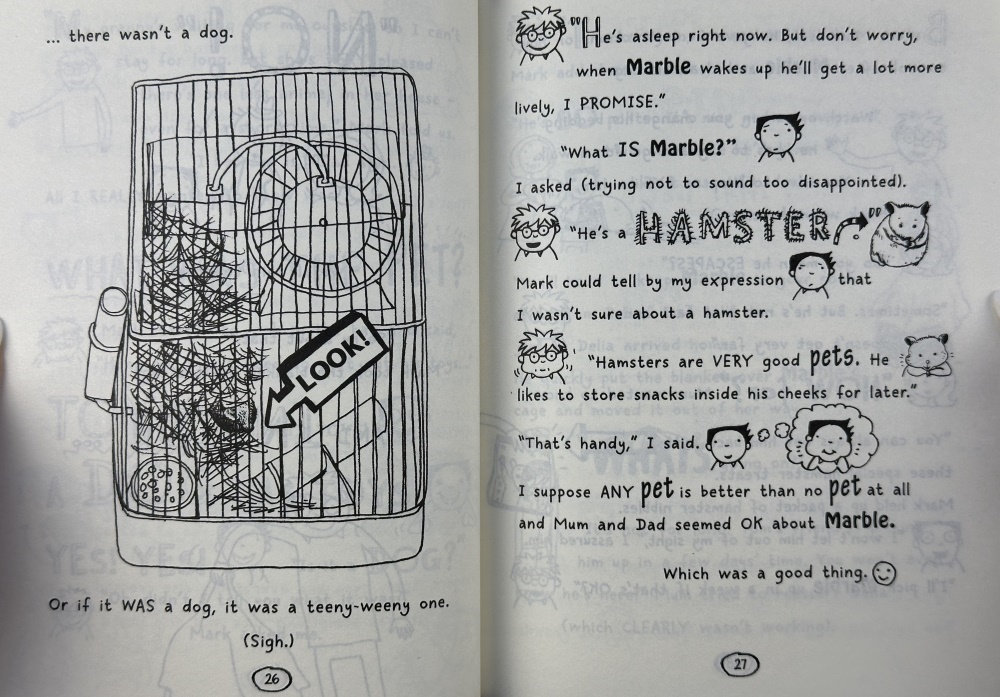 ... there wasn't a dog.
LOOK!
Or if it WAS a dog, it was a teeny-weeny one.
(Sigh.)
26
"He's asleep right now. But don't worry,
when Marble wakes up he'll get a lot more
lively, I PROMISE."
"What IS Marble?"
I asked (trying not to sound too disappointed).
"He's a HAMSTER"
Mark could tell by my expression that
I wasn't sure about a hamster.
"Hamsters are VERY good pets. He
likes to store snacks inside his cheeks for later."
"That's handy," I said.
I suppose ANY pet is better than no pet at all
and Mum and Dad seemed OK about Marble.
Which was a good thing.
27